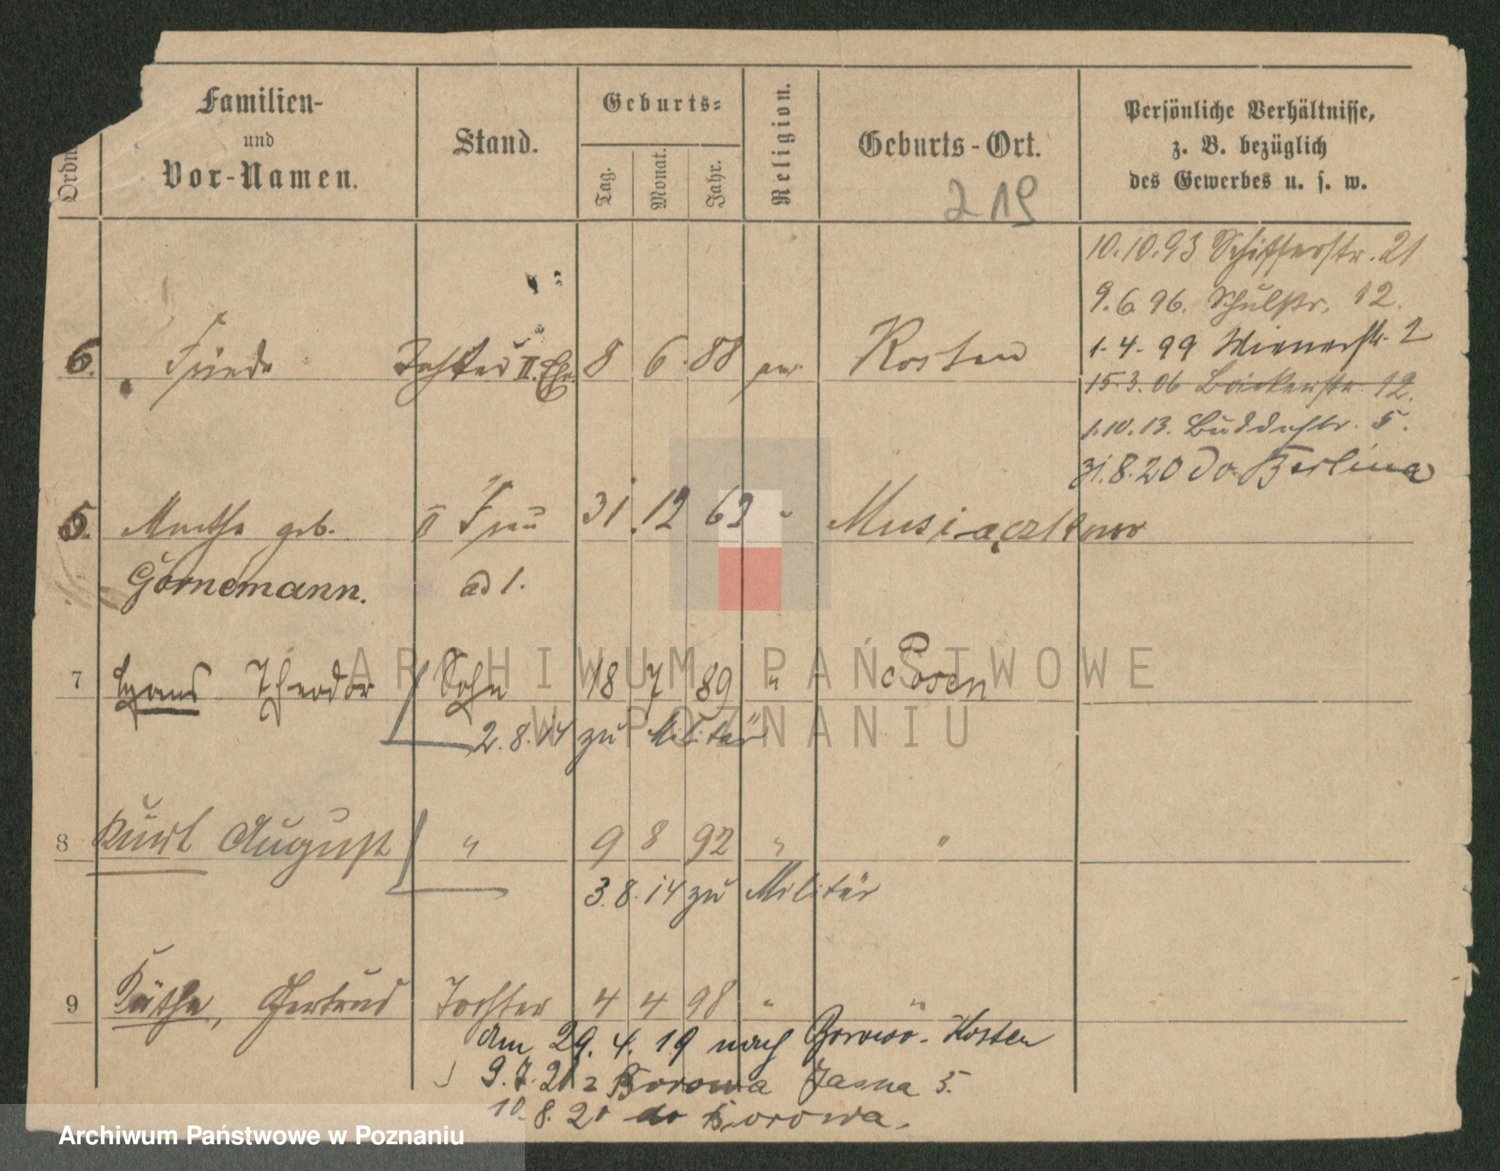 Ordn
Familien-
und
Vor-Namen.
Stand.
Geburts-
Tag.
Monat.
Jahr.
Religion.
Geburts-Ort.
219
Persönliche Verhältnisse,
z. B. bezüglich
des Gewerbes u. s. w.
10.10.93 Schifferstr. 21
9.6.96. Schulstr. 12.
1.4.99 Wienerstr. 2
15.3.06 Bäckerstr. 12.
1.10.13. Buddestr. 5.
31.8.20 do Berlina
6. Frieda Tochter II. Ehe 8 6. 88 Kosten
5. Martha geb. II Frau 31. 12 62 "
Gornemann. ad 1.
7 Theodor Sohn 18 7 89 " Posen
2.8.14 zu Militär
8 Kurt August " 9 8 92 " "
3.8.14 zu Militär
9 Käthe, Gertrud Tochter 4 4 98 " "
Am 29.4.19 nach Borowo-Kosten
9.7.20 z Borowa Jasna 5.
10.8.20 do Borowa.
ARCHIWUM PAŃSTWOWE
W POZNANIU
Archiwum Państwowe w Poznaniu